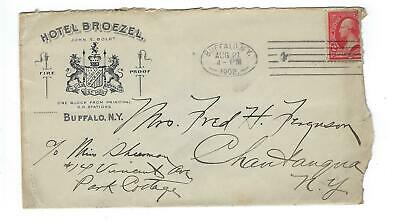 HOTEL BROEZEL,
JOHN E. BOLDT
FIRE PROOF
ONE BLOCK FROM PRINCIPAL
R.R. STATIONS.
BUFFALO, N.Y.
BUFFALO, N.Y.
AUG 21
4-PM
1902
Mrs. Fred H. Ferguson
Chautauqua
N.Y.
c/o Miss Sherman
#14 Vincent Av
Park Cottage